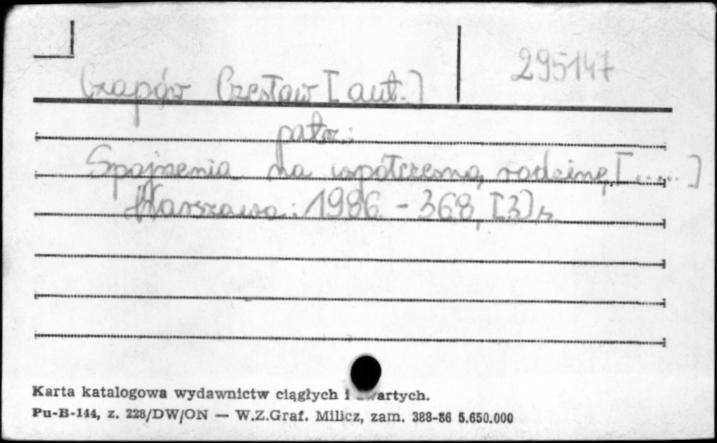 295147
Czapów Czesław [aut.]
patrz:
Spojrzenia na współczesną rodzinę [.....]
Warszawa: 1986 - 368, [3] s
Karta katalogowa wydawnictw ciągłych i zwartych.
Pu-B-144, z. 228/DW/ON — W.Z.Graf. Milicz, zam. 388-86 5.650.000